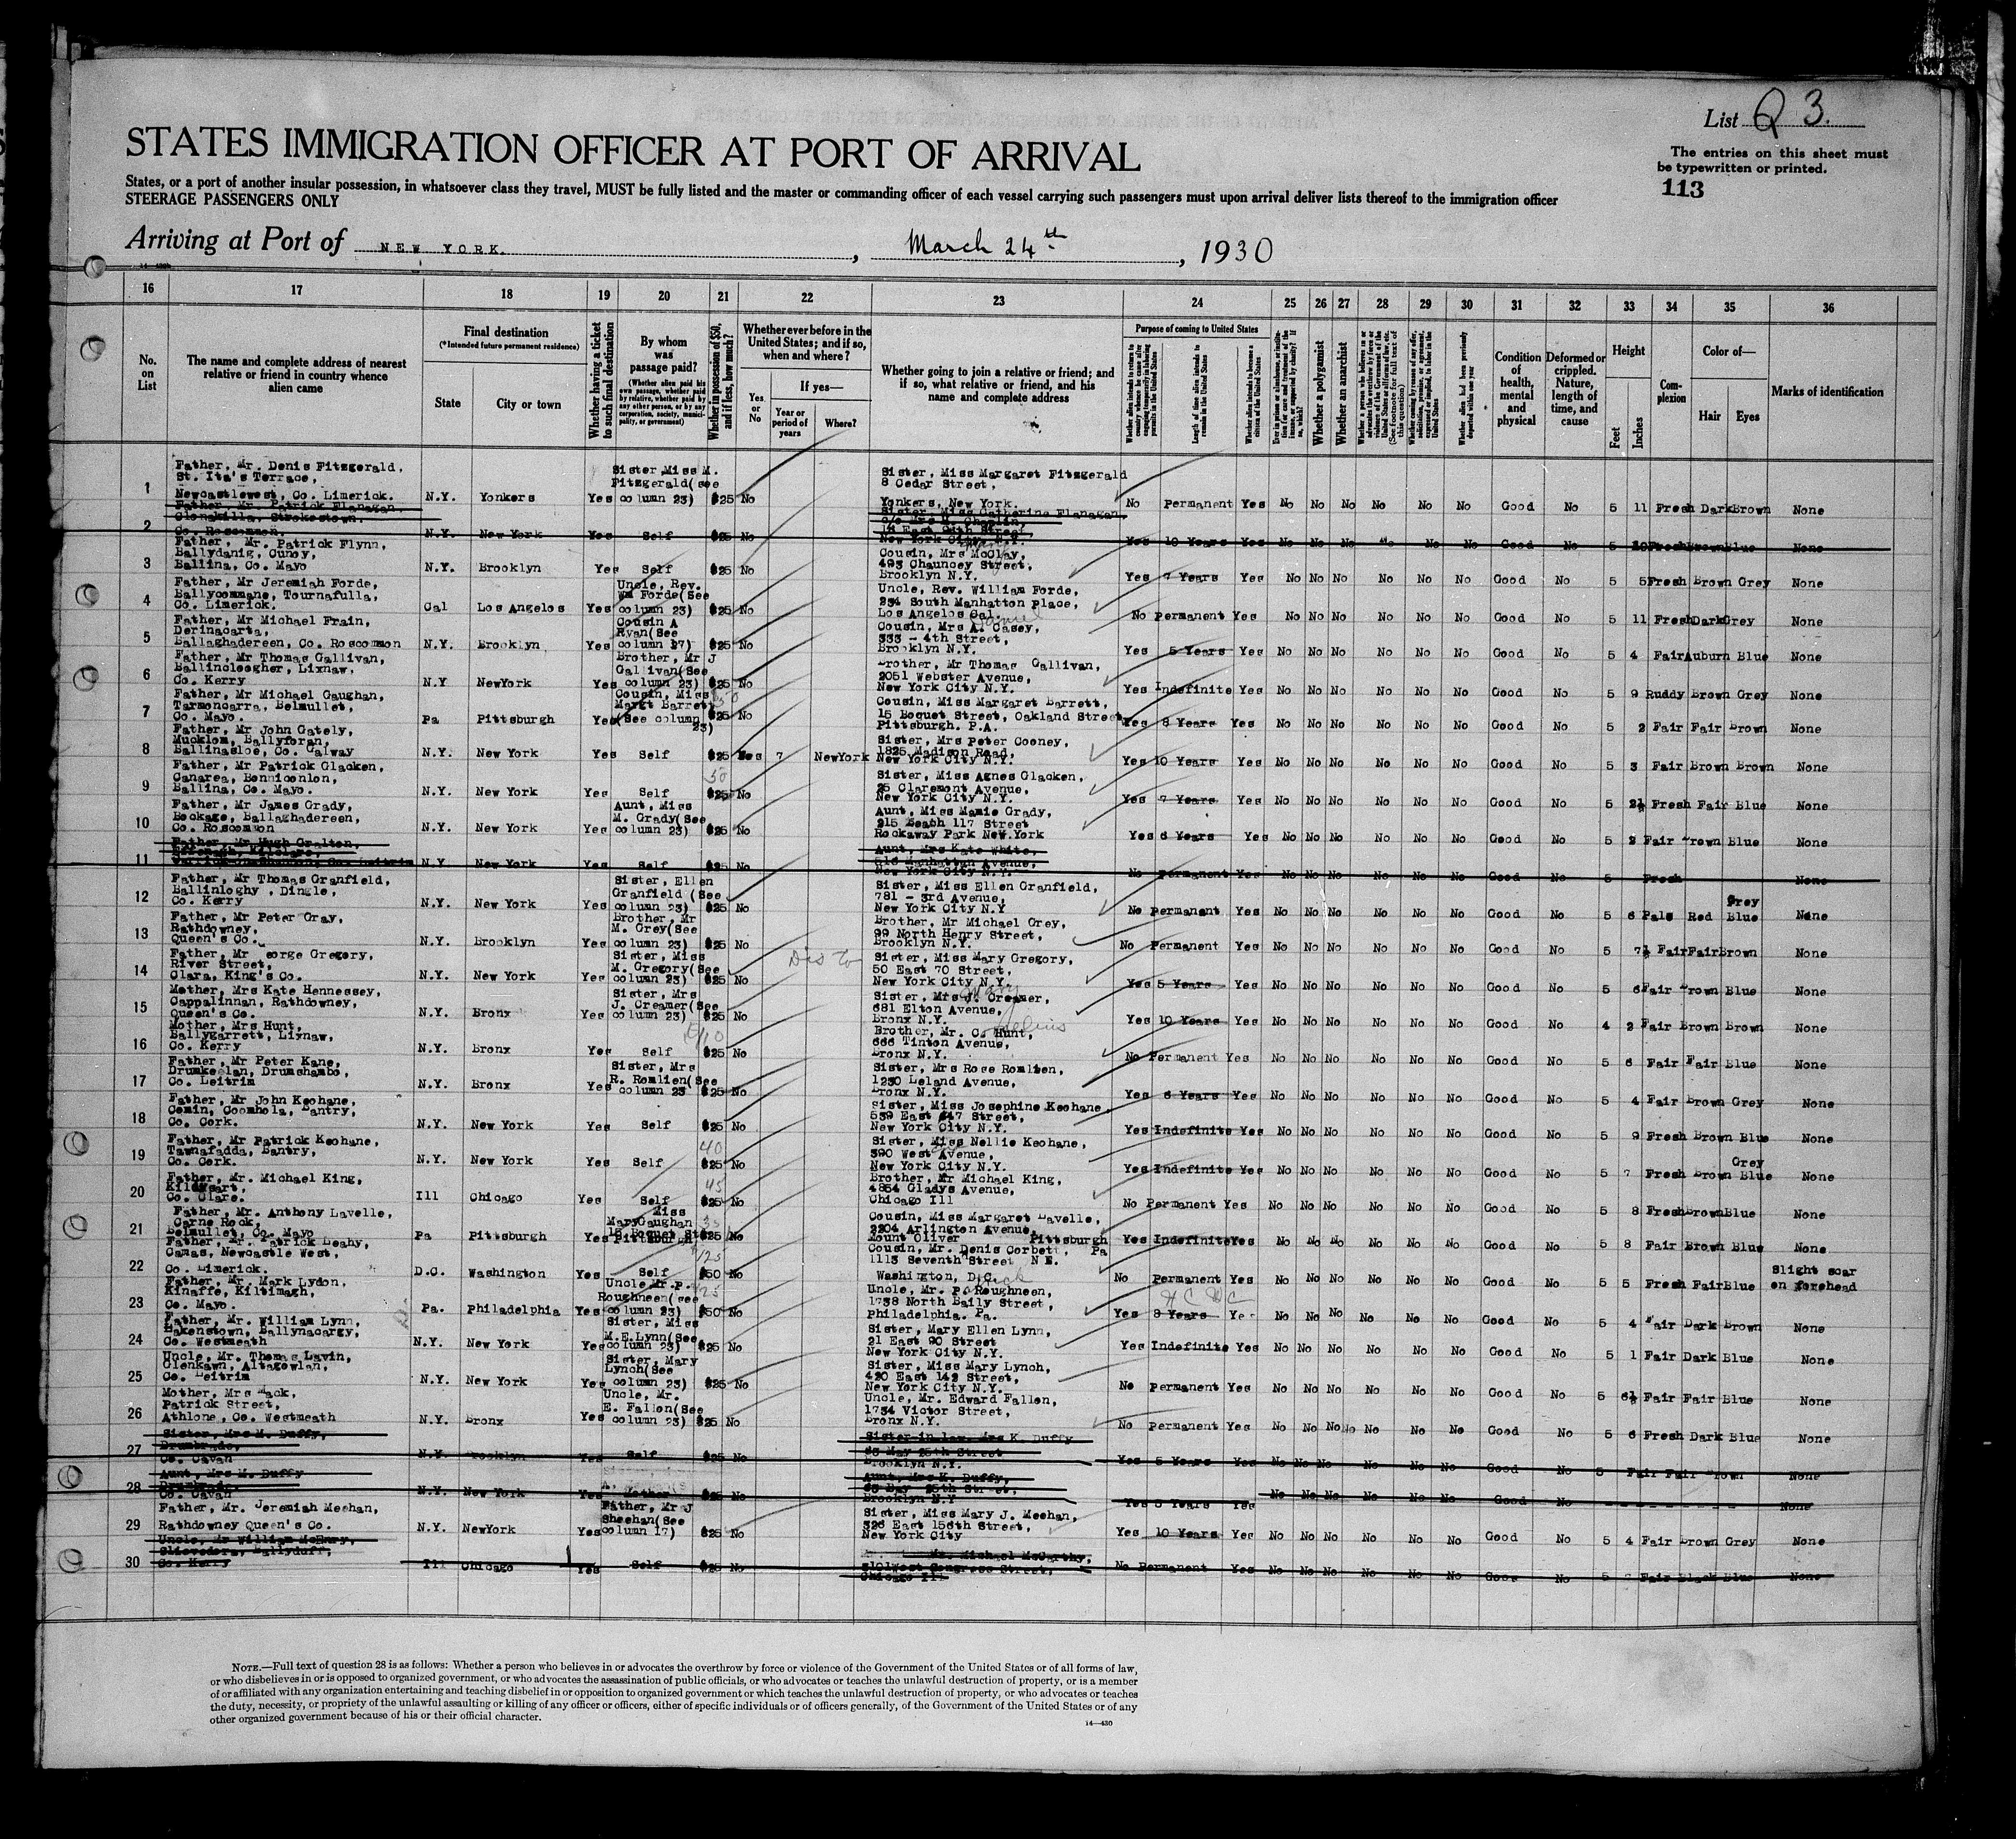 List Q 3.
STATES IMMIGRATION OFFICER AT PORT OF ARRIVAL
The entries on this sheet must
be typewritten or printed.
113
States, or a port of another insular possession, in whatsoever class they travel, MUST be fully listed and the master or commanding officer of each vessel carrying such passengers must upon arrival deliver lists thereof to the immigration officer
STEERAGE PASSENGERS ONLY
Arriving at Port of NEW YORK. , March 24th , 1930
16 17 18 19 20 21 22 23 24 25 26 27 28 29 30 31 32 33 34 35 36
No. on List
The name and complete address of nearest relative or friend in country whence alien came
Final destination
(*Intended future permanent residence)
State
City or town
Whether having a ticket to such final destination
By whom was passage paid?
(Whether alien paid his own passage, whether paid by relative, whether paid by any other person, or by any corporation, society, municipality, or government)
Whether in possession of $50, and if less, how much?
Whether ever before in the United States; and if so, when and where?
Yes or No
If yes—
Year or period of years
Where?
Whether going to join a relative or friend; and if so, what relative or friend, and his name and complete address
Purpose of coming to United States
Length of time alien intends to remain in the United States
Whether alien intends to become a citizen of the United States
Whether a polygamist
Whether an anarchist
Whether alien had been previously deported within one year
Condition of health, mental and physical
Deformed or crippled. Nature, length of time, and cause
Height
Feet
Inches
Complexion
Color of—
Hair
Eyes
Marks of identification
1 Father, Mr. Denis Fitzgerald, St. Ita's Terrace, Newcastlewest, Co. Limerick. N.Y. Yonkers Yes Sister, Miss M. Fitzgerald(see column 23) $25 No Sister, Miss Margaret Fitzgerald 8 Cedar Street, Yonkers, New York. No Permanent Yes No No No No No No Good No 5 11 Fresh Dark Brown None
2 Father, Mr. Patrick Flanagan, Strokestown, Co. Roscommon. N.Y. New York Yes Self $25 No Sister, Miss Catherine Flanagan c/o Mrs H. Chaplin New York City, N.Y. Yes 10 Years Yes No No No No No No Good No 5 Fresh Brown Blue None
3 Father, Mr. Patrick Flynn, Ballydanig, Cunoy, Ballina, Co. Mayo N.Y. Brooklyn Yes Self $25 No Cousin, Mrs McClay, 493 Chauncey Street, Brooklyn N.Y. Yes 7 Years Yes No No No No No No Good No 5 5 Fresh Brown Grey None
4 Father, Mr Jeremiah Forde, Ballycommane, Tournafulla, Co. Limerick. Cal Los Angelos Yes Uncle, Rev. Wm Forde(See column 23) $25 No Uncle, Rev. William Forde, 234 South Manhatton Place, Los Angelos Cal. No Permanent Yes No No No No No No Good No 5 11 Fresh Dark Grey None
5 Father, Mr Michael Frain, Derinacarta, Ballaghadereen, Co. Roscommon N.Y. Brooklyn Yes Cousin A Ryan(See column 27) $25 No Cousin, Mrs A. Casey, 333 - 4th Street, Brooklyn N.Y. Yes 5 Years Yes No No No No No No Good No 5 4 Fair Auburn Blue None
6 Father, Mr Thomas Gallivan, Ballincloogher, Lixnaw, Co. Kerry N.Y NewYork Yes Brother, Mr J Gallivan(See column 23) $25 No Brother, Mr Thomas Gallivan, 2051 Webster Avenue, New York City N.Y. Yes Indefinite Yes No No No No No No Good No 5 9 Ruddy Brown Grey None
7 Father, Mr Michael Gaughan, Tarmoncarra, Belmullet, Co. Mayo. Pa Pittsburgh Yes Cousin, Miss Margt Barrett (See column 23) $25 No Cousin, Miss Margaret Barrett, 15 Boquet Street, Oakland Street Pittsburgh. P.A. Yes 8 Years Yes No No No No No No Good No 5 2 Fair Fair Brown None
8 Father, Mr John Gately, Mucklom, Ballyforan, Ballinasloe, Co. Galway N.Y. New York Yes Self $25 Yes 7 NewYork Sister, Mrs Peter Cooney, 1825 Madison Road, New York City N.Y. Yes 10 Years Yes No No No No No No Good No 5 3 Fair Brown Brown None
9 Father, Mr Patrick Glacken, Canarea, Bonniconlon, Ballina, Co. Mayo. N.Y. New York Yes Self 50 $25 No Sister, Miss Agnes Glacken, 25 Claremont Avenue, New York City N.Y. Yes 7 Years Yes No No No No No No Good No 5 2½ Fresh Fair Blue None
10 Father, Mr James Grady, Bockage, Ballaghadereen, Co. Roscommon N.Y. New York Yes Aunt, Miss M. Grady(See column 23) $25 No Aunt, Miss Mamie Grady, 215 Beach 117 Street Rockaway Park New York Yes 6 Years Yes No No No No No No Good No 5 2 Fair Brown Blue None
11 Father, Mr Hugh Gralton, N.Y New York Yes Self $25 No Aunt, Mrs Kate White, Manhattan Avenue, New York City N.Y. No Permanent Yes No No No No No No Good No 5 Fresh None
12 Father, Mr Thomas Granfield, Ballinloghy, Dingle, Co. Kerry N.Y. New York Yes Sister, Ellen Granfield (See column 23) $25 No Sister, Miss Ellen Granfield, 781 - 3rd Avenue, New York City N.Y No Permanent Yes No No No No No No Good No 5 6 Pale Red Grey Blue None
13 Father, Mr Peter Gray, Rathdowney, Queen's Co. N.Y. Brooklyn Yes Brother, Mr M. Grey(See column 23) $25 No Brother, Mr Michael Grey, 99 North Henry Street, Brooklyn N.Y. No Permanent Yes No No No No No No Good No 5 7½ Fair Fair Brown None
14 Father, Mr eorge Gregory, River Street, Clara, King's Co. N.Y. New York Yes Sister, Miss M. Gregory(See column 23) $25 No Sister, Miss Mary Gregory, 50 East 70 Street, New York City N.Y. Yes 5 Years Yes No No No No No No Good No 5 6 Fair Brown Blue None
15 Mother, Mrs Kate Hennessey, Cappalinnan, Rathdowney, Queen's Co. N.Y. Bronx Yes Sister, Mrs J. Creamer(See column 23) $25 No Sister, Mrs J. Creamer, Mary 681 Elton Avenue, Bronx N.Y. Yes 10 Years Yes No No No No No No Good No 4 2 Fair Brown Brown None
16 Mother, Mrs Hunt, Ballygarrett, Lixnaw, Co. Kerry N.Y. Bronx Yes Self $25 No Brother, Mr. C. Hunt, 666 Tinton Avenue, Bronx N.Y. No Permanent Yes No No No No No No Good No 5 6 Fair Fair Blue None
17 Father, Mr Peter Kane, Drumkeelan, Drumshambo, Co. Leitrim N.Y. Bronx Yes Sister, Mrs R. Romlien(See column 23 $25 No Sister, Mrs Rose Romlien, 1230 Leland Avenue, Bronx N.Y. Yes 6 Years Yes No No No No No No Good No 5 4 Fair Brown Grey None
18 Father, Mr John Keohane, Comin, Coomhola, Bantry, Co. Cork. N.Y. New York Yes Self $25 No Sister, Miss Josephine Keohane, 539 East 147 Street, New York City N.Y. Yes Indefinite Yes No No No No No No Good No 5 9 Fresh Brown Blue None
19 Father, Mr Patrick Keohane, Tawnafadda, Bantry, Co. Cork. N.Y. New York Yes Self 40 $25 No Sister, Miss Nellie Keohane, 390 West Avenue, New York City N.Y. Yes Indefinite Yes No No No No No No Good No 5 7 Fresh Brown Grey Blue None
20 Father, Mr. Michael King, Kildysart, Co. Clare. Ill Chicago Yes Self 45 $25 No Brother, Mr Michael King, 4854 Gladys Avenue, Chicago Ill No Permanent Yes No No No No No No Good No 5 8 Fresh Brown Blue None
21 Father, Mr. Anthony Lavelle, Carne Rock, Belmullet, Co. Mayo Pa Pittsburgh Yes Miss MaryGaughan 15 Boquet St Pittsburgh $25 No Cousin, Miss Margaret Lavelle, 2204 Arlington Avenue, Mount Oliver Pittsburgh Pa Yes Indefinite Yes No No No No No No Good No 5 8 Fair Brown Blue None
22 Father, Mr. Patrick Leahy, Camas, Newcastle West, Co. Limerick. D.C. Washington Yes Self 125 $50 No Cousin, Mr. Denis Corbett, 1113 Seventh Street N E. Washington, D.C. No Permanent Yes No No No No No No Good No 5 5 Fresh Fair Blue Slight scar on forehead
23 Father, Mr. Mark Lydon, Kinaffe, Kiltimagh, Co. Mayo. Pa. Philadelphia Yes Uncle Mr. P. Roughneen(see column 23) $50 No Uncle, Mr. P. Roughneen, 1738 North Baily Street, Philadelphia. Pa. Yes 8 Years Yes No No No No No No Good No 5 4 Fair Dark Brown None
24 Father, Mr. William Lynn, Bakenstown, Ballynacargy, Co. Westmeath N.Y. New York Yes Sister, Miss M.E.Lynn(See column 23) $25 No Sister, Mary Ellen Lynn, 21 East 90 Street New York City N.Y. Yes Indefinite Yes No No No No No No Good No 5 1 Fair Dark Blue None
25 Uncle, Mr. Thomas Lavin, Glenkawn, Altagowlan, Co. Leitrim N.Y. New York Yes Sister, Mary Lynch(See column 23) $25 No Sister, Miss Mary Lynch, 420 East 142 Street, New York City N.Y. No Permanent Yes No No No No No No Good No 5 6½ Fair Fair Blue None
26 Mother, Mrs Mack, Patrick Street, Athlone, Co. Westmeath N.Y. Bronx Yes Uncle, Mr. E. Fallon(See column 23) $25 No Uncle, Mr. Edward Fallen, 1734 Victor Street, Bronx N.Y. No Permanent Yes No No No No No No Good No 5 6 Fresh Dark Blue None
27 Sister, Mrs M. Duffy, Drumbrade, Co. Cavan N.Y. Brooklyn Yes Self $25 No Sister-in law, Mrs K. Duffy 25th Street Brooklyn N.Y. Yes 5 Years Yes No No No No No No Good No 5 Fair Fair Brown None
28 Aunt, Mrs M. Duffy Drumbrade, Co. Cavan N.Y. New York Yes Mother $25 No Aunt, Mrs K. Duffy, 25th Street, Brooklyn N.Y Yes 5 Years Yes No No No No No No Good No None
29 Father, Mr. Jeremiah Meehan, Rathdowney Queen's Co. N.Y. NewYork Yes Father, Mr J Sheehan(See column 17) $25 No Sister, Miss Mary J. Meehan, 326 East 156th Street, New York City Yes 10 Years Yes No No No No No No Good No 5 4 Fair Brown Grey None
30 Uncle, Mr William McEnry, Slieveadara, Ballyduff, Co. Kerry Ill Chicago Yes Self $25 No Mr. Michael McCarthy, West Congress Street, Chicago Ill No Permanent Yes No No No No No No Good No 5 Fair Black Blue None
NOTE.—Full text of question 28 is as follows: Whether a person who believes in or advocates the overthrow by force or violence of the Government of the United States or of all forms of law,
or who disbelieves in or is opposed to organized government, or who advocates the assassination of public officials, or who advocates or teaches the unlawful destruction of property, or is a member
of or affiliated with any organization entertaining and teaching disbelief in or opposition to organized government or which teaches the unlawful destruction of property, or who advocates or teaches
the duty, necessity, or propriety of the unlawful assaulting or killing of any officer or officers, either of specific individuals or of officers generally, of the Government of the United States or of any
other organized government because of his or their official character.
14—430